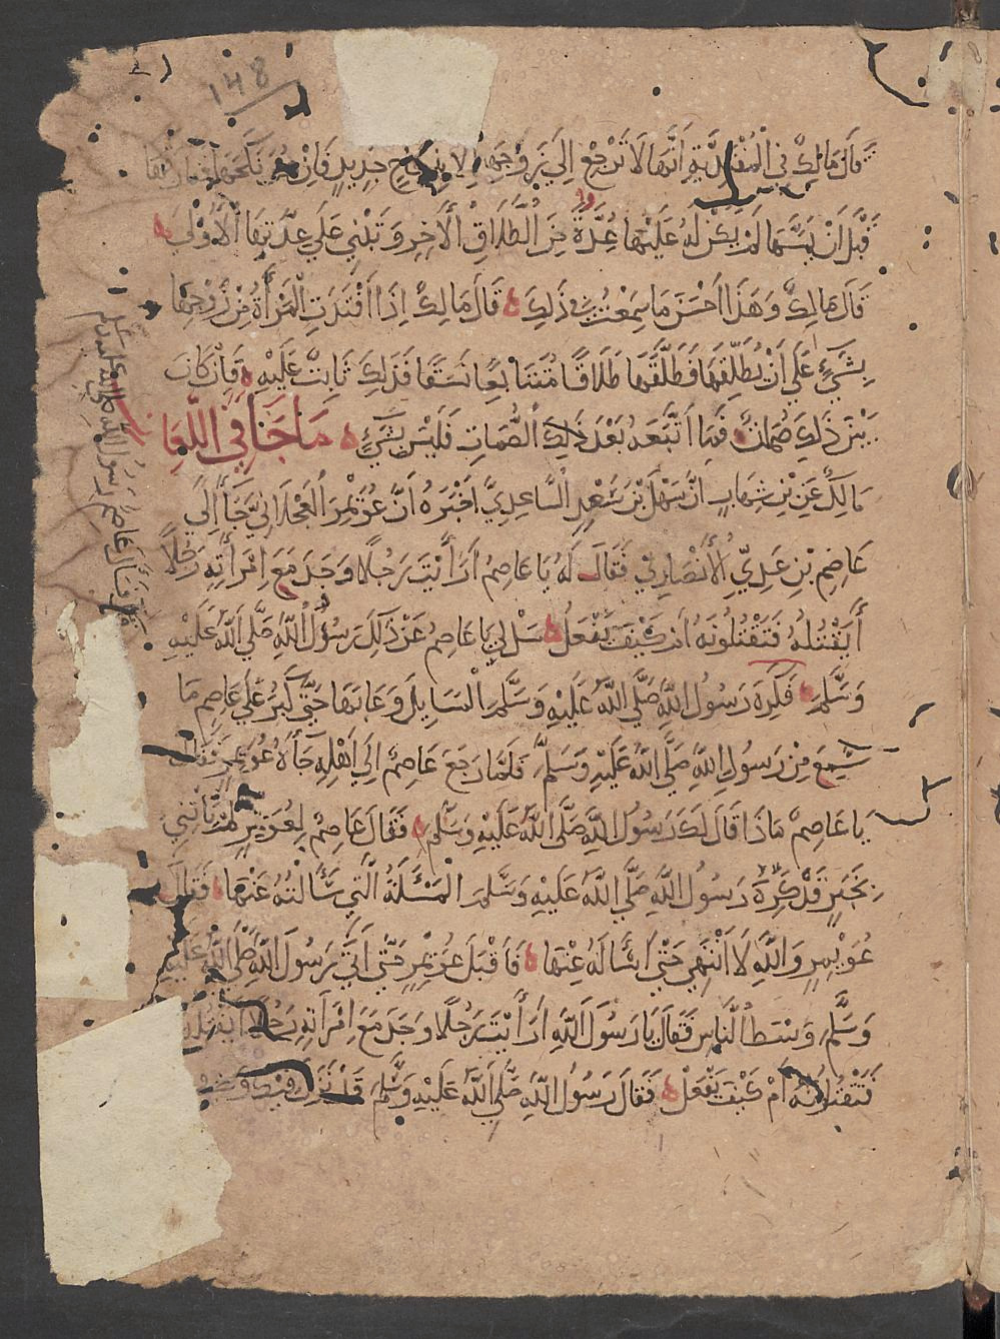 148
قَالَ مَالِكٌ فِي الْمُفْتَدِيَةِ اَنَّهَا لَا تَرْجِعُ اِلَي زَوْجِهَا اِلَّا بِنِكَاحٍ جَدِيدٍ فَاِنْ هُوَ نَكَحَهَا فَفَارَقَهَا
قَبْلَ اَنْ يَمَسَّهَا لَمْ يَكُنْ لَهُ عَلَيْهَا عِدَّةٌ مِنَ الطَّلَاقِ الْآخِرِ وَتَبْنِي عَلَي عِدَّتِهَا الْاُوْلَي
قَالَ مَالِكٌ وَهَذَا اَحْسَنُ مَا سَمِعْتُ فِي ذَلِكَ قَالَ مَالِكٌ اِذَا افْتَدَتِ الْمَرْأَةُ مِنْ زَوْجِهَا
بِشَيْءٍ عَلَي اَنْ يُطَلِّقَهَا فَطَلَّقَهَا طَلَاقًا مُتَتَابِعًا نَسَقًا فَذَلِكَ ثَابِتٌ عَلَيْهِ فَاِنْ كَانَ
بَيْنَ ذَلِكَ صُمَاتٌ فَمَا اَتْبَعَهُ بَعْدَ ذَلِكَ الصُّمَاتِ فَلَيْسَ بِشَيْءٍ مَا جَآءَ فِي اللِّعَانِ
مَالِكٌ عَنِ بْنِ شِهَابٍ اَنَّ سَهْلَ بْنَ سَعْدٍ السَّاعِدِيَّ اَخْبَرَهُ اَنَّ عُوَيْمِرَ الْعَجْلَانِيَّ جَآءَ اِلَي
عَاصِمِ بْنِ عَدِيٍّ الْاَنْصَارِيِّ فَقَالَ لَهُ يَا عَاصِمُ اَرَأَيْتَ رَجُلًا وَجَدَ مَعَ امْرَأَتِهِ رَجُلًا
أَيَقْتُلُهُ فَتَقْتُلُونَهُ اَمْ كَيْفَ يَفْعَلُ سَلْ لِي يَا عَاصِمُ عَنْ ذَلِكَ رَسُولَ اللَّهِ صَلَّي اللَّهُ عَلَيْهِ
وَسَلَّمَ فَكَرِهَ رَسُولُ اللَّهِ صَلَّي اللَّهُ عَلَيْهِ وَسَلَّمَ الْمَسَايِلَ وَعَابَهَا حَتَّي كَبُرَ عَلَي عَاصِمٍ مَا
سَمِعَ مِنْ رَسُولِ اللَّهِ صَلَّي اللَّهُ عَلَيْهِ وَسَلَّمَ فَلَمَّا رَجَعَ عَاصِمٌ اِلَي اَهْلِهِ جَآءَهُ عُوَيْمِرٌ فَقَالَ
يَا عَاصِمُ مَاذَا قَالَ لَكَ رَسُولُ اللَّهِ صَلَّي اللَّهُ عَلَيْهِ وَسَلَّمَ فَقَالَ عَاصِمٌ لِعُوَيْمِرٍ لَمْ تَأْتِنِي
بِخَيْرٍ قَدْ كَرِهَ رَسُولُ اللَّهِ صَلَّي اللَّهُ عَلَيْهِ وَسَلَّمَ الْمَسْئَلَةَ الَّتِي سَأَلْتُهُ عَنْهَا فَقَالَ
عُوَيْمِرٌ وَاللَّهِ لَا اَنْتَهِي حَتَّي اَسْأَلَهُ عَنْهَا فَاَقْبَلَ عُوَيْمِرٌ حَتَّي اَتَي رَسُولَ اللَّهِ صَلَّي اللَّهُ عَلَيْهِ
وَسَلَّمَ وَسْطَ النَّاسِ فَقَالَ يَا رَسُولَ اللَّهِ اَرَأَيْتَ رَجُلًا وَجَدَ مَعَ امْرَأَتِهِ رَجُلًا اَيَقْتُلُهُ
فَتَقْتُلُونَهُ اَمْ كَيْفَ يَفْعَلُ فَقَالَ رَسُولُ اللَّهِ صَلَّي اللَّهُ عَلَيْهِ وَسَلَّمَ قَدْ نَزَلَ فِيكَ وَفِي
فَسَأَلَ عَاصِمٌ رَسُولَ اللَّهِ صلي الله عليه وسلم